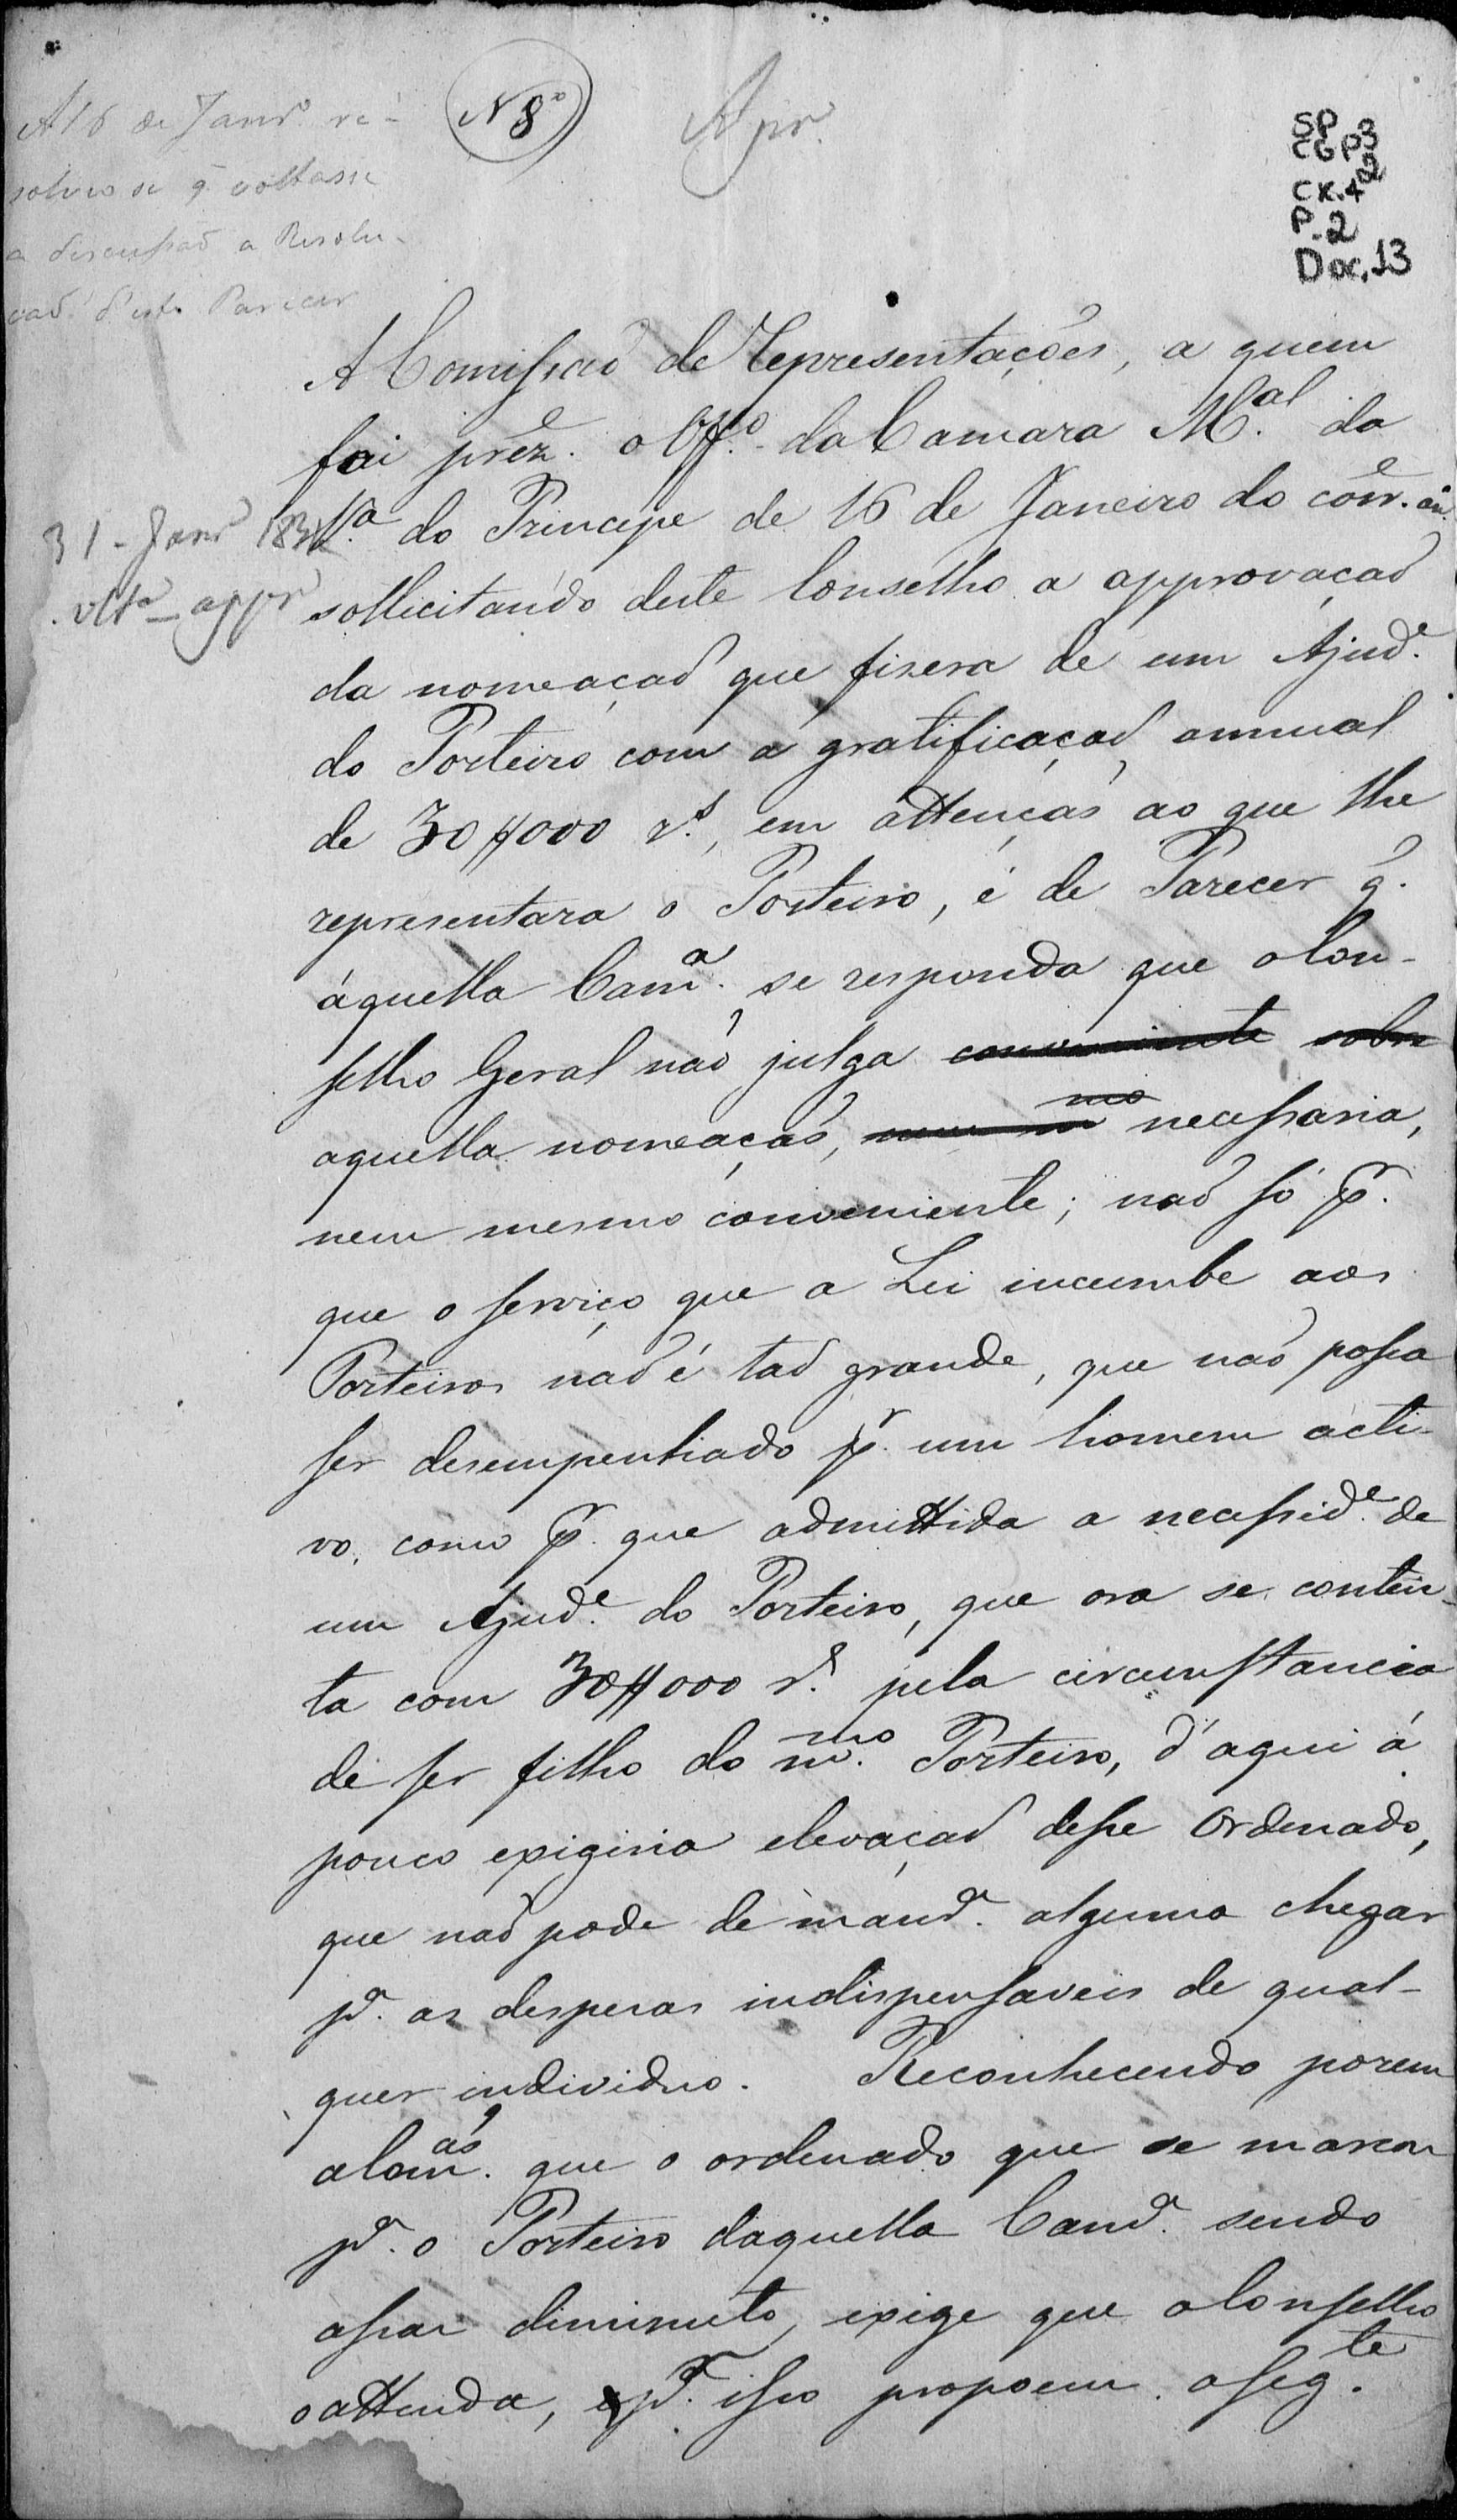 A 16 de Janrº re-
solveo se q̃ voltasse
a discussaõ a Resolu-
caõ d'este Parecer
Nº 8
Apr.
SP
CGP3
CX.42
P.2
Doc.13
A Comissaõ de Representações, a quem
foi prez.e o Off.º da Camara M.al da
Vª do Principe de 16 de Janeiro do corr.e an.
31 - Janrº 183
sollicitando deste Conselho a approvaçaõ
. ultª - apprª
da nomeaçaõ que fizera de um Ajud.e
do Porteiro com a gratificaçaõ annual
de 30$000 r.s, em attençaõ ao que lhe
representara o Porteiro, é de Parecer q̃.
áquella Cam.a se responda que o Con-
selho Geral naõ julga conveniente sobre
aquella nomeaçaõ, necessaria,
nem mesmo conveniente; naõ só p.r
que o serviço que a Lei incumbe aos
Porteiros naõ é taõ grande, que naõ possa
ser desempenhado p.r um homem acti-
vo, como p.r que admittida a necessid.e de
um Ajud.e do Porteiro, que ora se conten-
ta com 30$000 r.s pela circunstancia
de ser filho do m.mo Porteiro, d'aqui á
pouco exigiria elevaçaõ desse Ordenado,
que naõ pode de manr.a alguma chegar
p.a as despezas indispensaveis de qual-
quer individuo. Reconhecendo porem
a Com.aõ que o ordenado que se marcou
p.a o Porteiro daquella Cam.a sendo
assas diminuto, exige que o Conselho
o attenda, e p.r isso propoem o seg.te